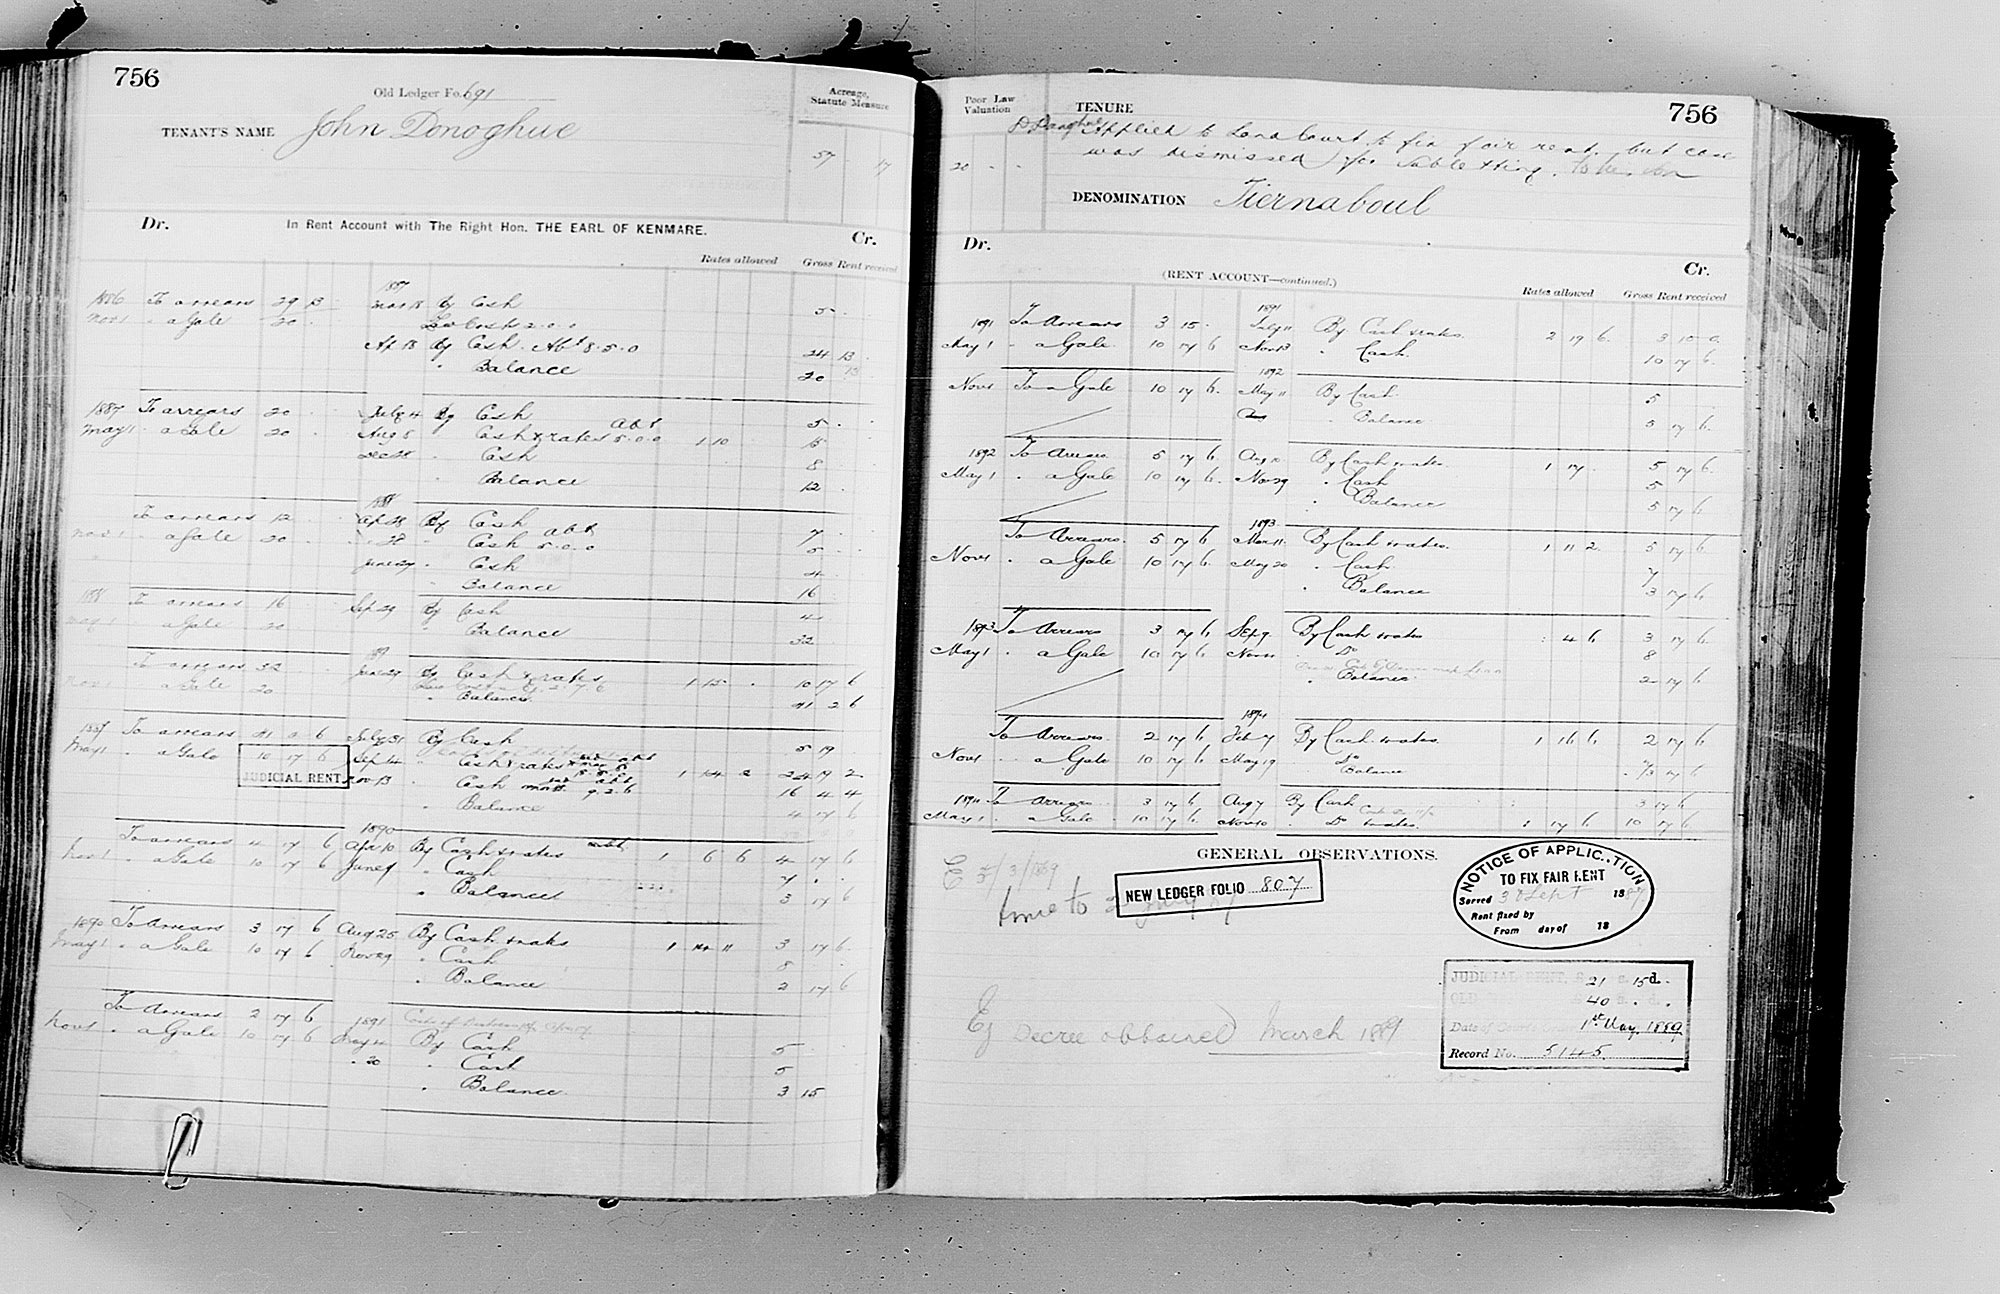 756
Old Ledger Fo. 691
TENANT'S NAME John Donoghue
Acreage, Statute Measure
57 17
Dr. In Rent Account with The Right Hon. THE EARL OF KENMARE. Cr.
Rates allowed Gross Rent received
1887
1886 To arrears 29 13 Mar 18 By Cash 5
Nov 1 " a Gale 20 Law Costs 2.0.0
Ap 18 By Cash. Abt 8.5.0 24 13
" Balance 20
1887 To arrears 20 July 4 By Cash 5
May 1 " a Gale 20 Aug 8 " Cash & rates abt 5.0.0 1 10 15
Dec 28 " Cash 8
" Balance 12
1888
To arrears 12 Ap 28 By Cash 7
Nov 1 " a Gale 20 " 28 " Cash abt 5.0.0 5
June 29 " Cash 4
" Balance 16
1888 To arrears 16 Sep 29 By Cash 4
May 1 " a Gale 20 " Balance 32
89
To arrears 32 June 29 By Cash & rates 1 15 10 17 6
Nov 1 " a Gale 20
" Balance 41 2 6
To arrears 41 2 6 July 31 By Cash 5 19
May 1 " a Gale 10 17 6 Sep 14 " Cash & rates 1 14 2 24 19 2
JUDICIAL RENT Nov 13 " Cash 9.2.6 16 4 4
" Balance 4 17 6
1890
To arrears 4 17 6 Apr 10 By Cash & rates 1 6 6 4 17 6
Nov 1 " a Gale 10 17 6 June 9 " Cash 7
" Balance 3 17 6
1890 To Arrears 3 17 6 Aug 25 By Cash & rates 1 14 11 3 17 6
May 1 " a Gale 10 17 6 Nov 29 " Cash 8
" Balance 2 17 6
To Arrears 2 17 6 1891
Nov 1 " a Gale 10 17 6 May By Cash 5
" 20 " Cash 5
" Balance 3 15
Poor Law Valuation
20
TENURE
756
Applied to Land Court to fix fair rent, but case
was dismissed for Subletting.
DENOMINATION Tiernaboul
Dr. (RENT ACCOUNT—continued.) Cr.
Rates allowed Gross Rent received
1891
1891 To Arrears 3 15 July 11 By Cash & rates 2 19 6 3 15 0
May 1 " a Gale 10 17 6 Nov 13 " Cash 10 17 6
1892
Nov 1 To a Gale 10 17 6 May 11 By Cash 5
Balance 5 17 6
1892 To Arrears 5 17 6 Aug By Cash & rates 1 17 5 17 6
May 1 " a Gale 10 17 6 Nov 29 " Cash 5
" Balance 5 17 6
1893
To Arrears 5 17 6 Mar 11 By Cash & rates 1 11 2 5 17 6
Nov 1 " a Gale 10 17 6 May 20 " Cash 7
" Balance 3 17 6
1893 To Arrears 3 17 6 Sep 9 By Cash & rates 4 6 3 17 6
May 1 " a Gale 10 17 6 Nov " Do 8
" Balance 2 17 6
1894
To Arrears 2 17 6 Feb 7 By Cash & rates 1 16 6 2 17 6
Nov 1 " a Gale 10 17 6 May 19 Do 7
Balance 3 17 6
1894 To Arrears 3 17 6 Aug 7 By Cash 3 17 6
May 1 " a Gale 10 17 6 Nov 10 " Do & rates 1 17 6 10 17 6
GENERAL OBSERVATIONS.
E 5/3/1889
time to
NEW LEDGER FOLIO 807
NOTICE OF APPLICATION
TO FIX FAIR RENT
Served 30 Sept 1887
Rent fixed by
From day of 18
JUDICIAL RENT, £ 21 s. 15 d.
OLD £ 40 s. d.
Date of 1st May, 1889
Record No. 5145
Ej Decree obtained March 1889